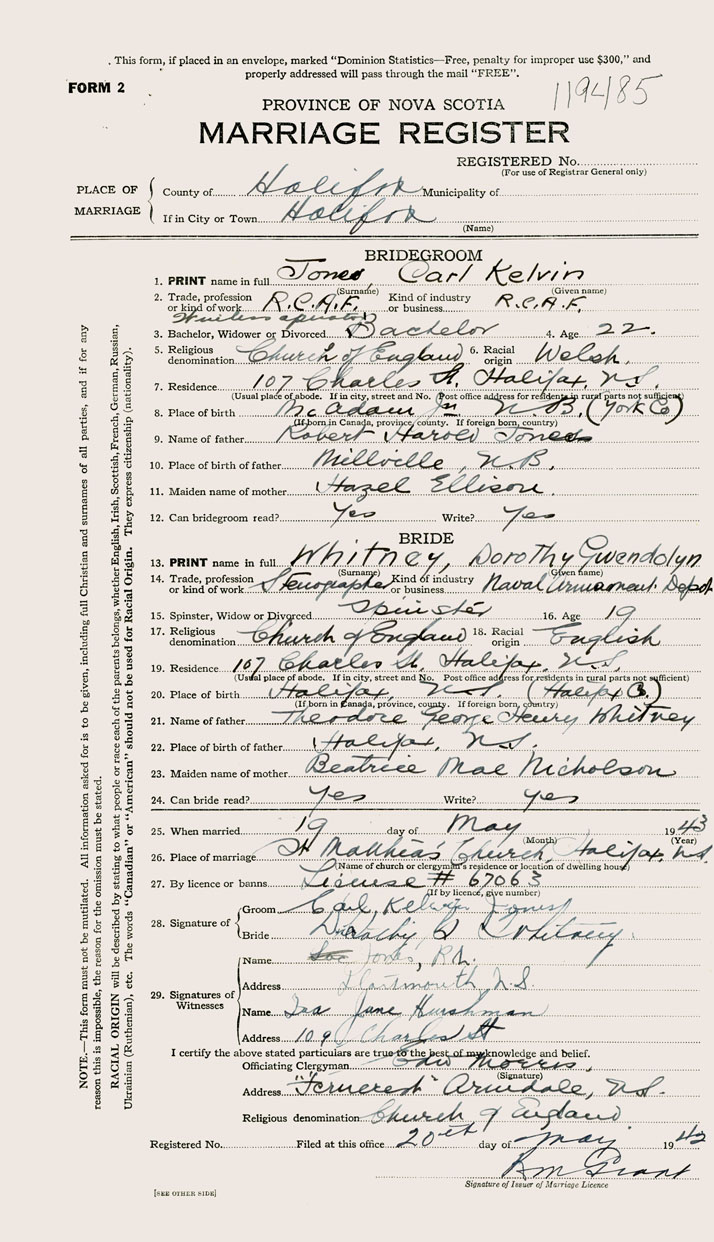 . This form, if placed in an envelope, marked “Dominion Statistics—Free, penalty for improper use $300,” and
properly addressed will pass through the mail “FREE”.
FORM 2
119485
PROVINCE OF NOVA SCOTIA
MARRIAGE REGISTER
REGISTERED No.
(For use of Registrar General only)
PLACE OF MARRIAGE
County of Halifax Municipality of
If in City or Town Halifax
(Name)
BRIDEGROOM
1. PRINT name in full Jones, Carl Kelvin
(Surname) (Given name)
2. Trade, profession or kind of work R.C.A.F. Wireless operator Kind of industry or business R.C.A.F.
3. Bachelor, Widower or Divorced Bachelor 4. Age 22.
5. Religious denomination Church of England 6. Racial origin Welsh.
7. Residence 107 Charles St. Halifax, N.S.
(Usual place of abode. If in city, street and No. Post office address for residents in rural parts not sufficient)
8. Place of birth McAdam Jn N.B. (York Co)
(If born in Canada, province, county. If foreign born, country)
9. Name of father Robert Harold Jones
10. Place of birth of father Millville, N.B.
11. Maiden name of mother Hazel Ellison.
12. Can bridegroom read? Yes Write? Yes
BRIDE
13. PRINT name in full Whitney, Dorothy Gwendolyn
(Surname) (Given name)
14. Trade, profession or kind of work Stenographer Kind of industry or business Naval Armament Depot
15. Spinster, Widow or Divorced Spinster 16. Age 19
17. Religious denomination Church of England 18. Racial origin English
19. Residence 107 Charles St. Halifax, N.S.
(Usual place of abode. If in city, street and No. Post office address for residents in rural parts not sufficient)
20. Place of birth Halifax, N.S. (Halifax Co.)
(If born in Canada, province, county. If foreign born, country)
21. Name of father Theodore George Henry Whitney
22. Place of birth of father Halifax, N.S.
23. Maiden name of mother Beatrice Mae Nicholson
24. Can bride read? Yes Write? Yes
25. When married 19 day of May 1943
(Month) (Year)
26. Place of marriage St Matthias Church, Halifax, N.S.
(Name of church or clergyman's residence or location of dwelling house)
27. By licence or banns License # 67063
(If by licence, give number)
28. Signature of Groom Carl Kelvin Jones
Bride Dorothy G Whitney.
29. Signatures of Witnesses
Name Jones, R.
Address Dartmouth, N.S.
Name Iza Jane Hurshman
Address 109 Charles St
I certify the above stated particulars are true to the best of my knowledge and belief.
Officiating Clergyman Edw Morris,
(Signature)
Address "Ferncrest" Armdale, N.S.
Religious denomination Church of England
Registered No. Filed at this office 20th day of May 1943
BM Grant
Signature of Issuer of Marriage Licence
[SEE OTHER SIDE]
NOTE.—This form must not be mutilated. All information asked for is to be given, including full Christian and surnames of all parties, and if for any
reason this is impossible, the reason for the omission must be stated.
RACIAL ORIGIN will be described by stating to what people or race each of the parents belongs, whether English, Irish, Scottish, French, German, Russian,
Ukrainian (Ruthenian), etc. The words “Canadian” or “American” should not be used for Racial Origin. They express citizenship (nationality).